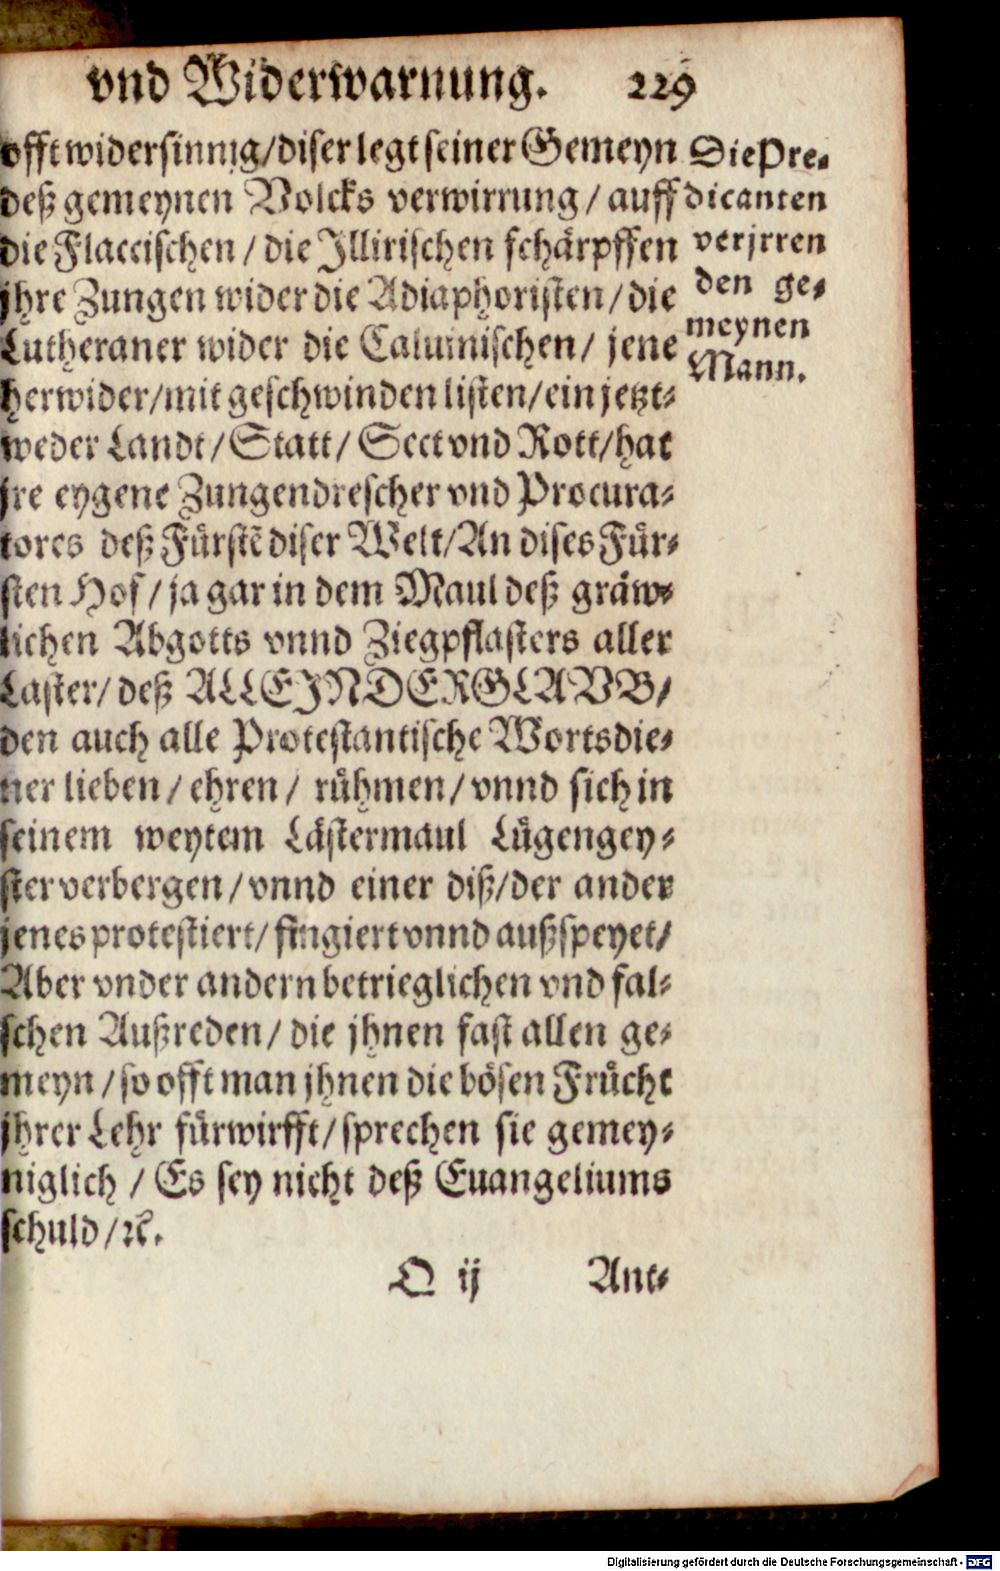 vnd Widerwarnung. 229
offt widersinnig/diser legt seiner Gemeyn
deß gemeynen Volcks verwirrung/ auff
die Flaccischen/ die Illirischen schärpffen
jhre Zungen wider die Adiaphoristen/ die
Lutheraner wider die Caluinischen/ jene
herwider/mit geschwinden listen/ein jetzt-
weder Landt/ Statt/ Sect vnd Rott/hat
jre eygene Zungendrescher vnd Procura-
tores deß Fürstẽ diser Welt/An dises Für-
sten Hof/ ja gar in dem Maul deß gräw-
lichen Abgotts vnnd Ziegpflasters aller
Laster/ deß ALLEINDERGLAVB/
den auch alle Protestantische Wortsdie-
ner lieben/ ehren/ rühmen/ vnnd sich in
seinem weytem Lästermaul Lügengey-
ster verbergen/ vnnd einer diß/der ander
jenes protestiert/ fingiert vnnd außspeyet/
Aber vnder andern betrieglichen vnd fal-
schen Außreden/ die jhnen fast allen ge-
meyn/ so offt man jhnen die bösen Frücht
jhrer Lehr fürwirfft/ sprechen sie gemey-
niglich/ Es sey nicht deß Euangeliums
schuld/ ꝛc.
Die Pre-
dicanten
verjrren
den ge-
meynen
Mann.
Q ij Ant-
Digitalisierung gefördert durch die Deutsche Forschungsgemeinschaft - DFG